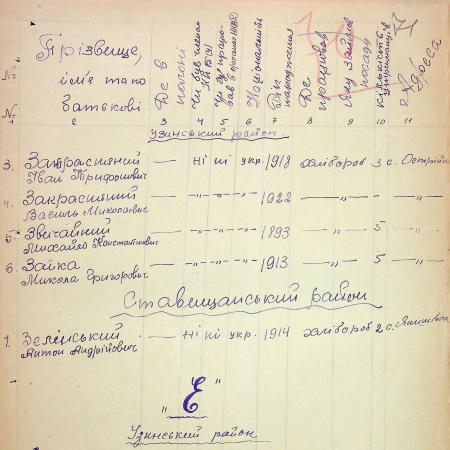 № Прізвище,
ім'я та по
№ батькові
Де в
полоні
Чи був членом
Національність
Рік
народження
Де
працював
Яку займав
посаду
кількість
Адреса
71
1 2 3 4 5 6 7 8 9 10 11
Узинський район
3. Закрасняний — ні ні укр. 1918 хлібороб 3 с. Острійки
Іван Трифонович
4. Закрасняний — „ „ „ 1922 — „ — - „
Василь Миколаєвич
5. Звичайний — „ „ „ 1893 — „ — 5 „
Михайло Констатинович
6. Заїка — „ „ „ 1913 — „ — 5 „
Микола Григорович
Ставищанський район
1. Зелінський — ні ні укр. 1914 хлібороб 2 с.
Антон Андрійович
„Е"
Узинський район